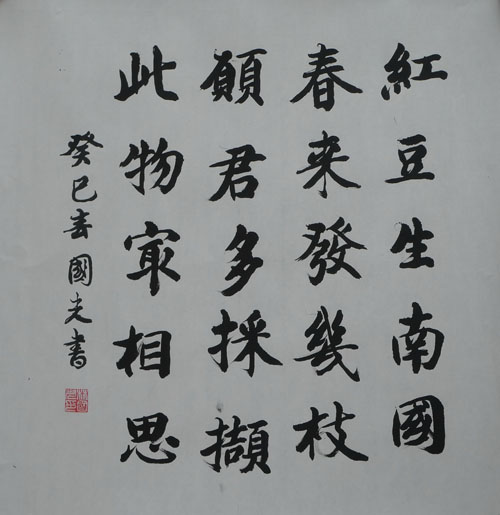 紅豆生南國
春来發幾枝
願君多採擷
此物㝡相思
癸巳春國光書